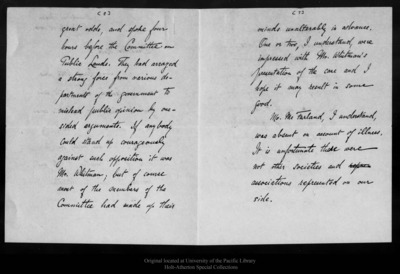 (3)
great odds, and spoke four
hours before the Committee on
Public Lands. They had arrayed
a strong force from various de-
partments of the government to
mislead public opinion by one-
sided arguments. If anybody
could stand up courageously
against such opposition it was
Mr. Whitman; but of course
most of the members of the
Committee had made up their
minds unalterably in advance.
One or two, I understand, were
impressed with Mr. Whitman's
presentation of the case and I
hope it may result in some
good.
Mr. McFarland, I understand,
was absent on account of illness.
It is unfortunate there were
not other societies and
associations represented on our
side.
Original located at University of the Pacific Library
Holt-Atherton Special Collections